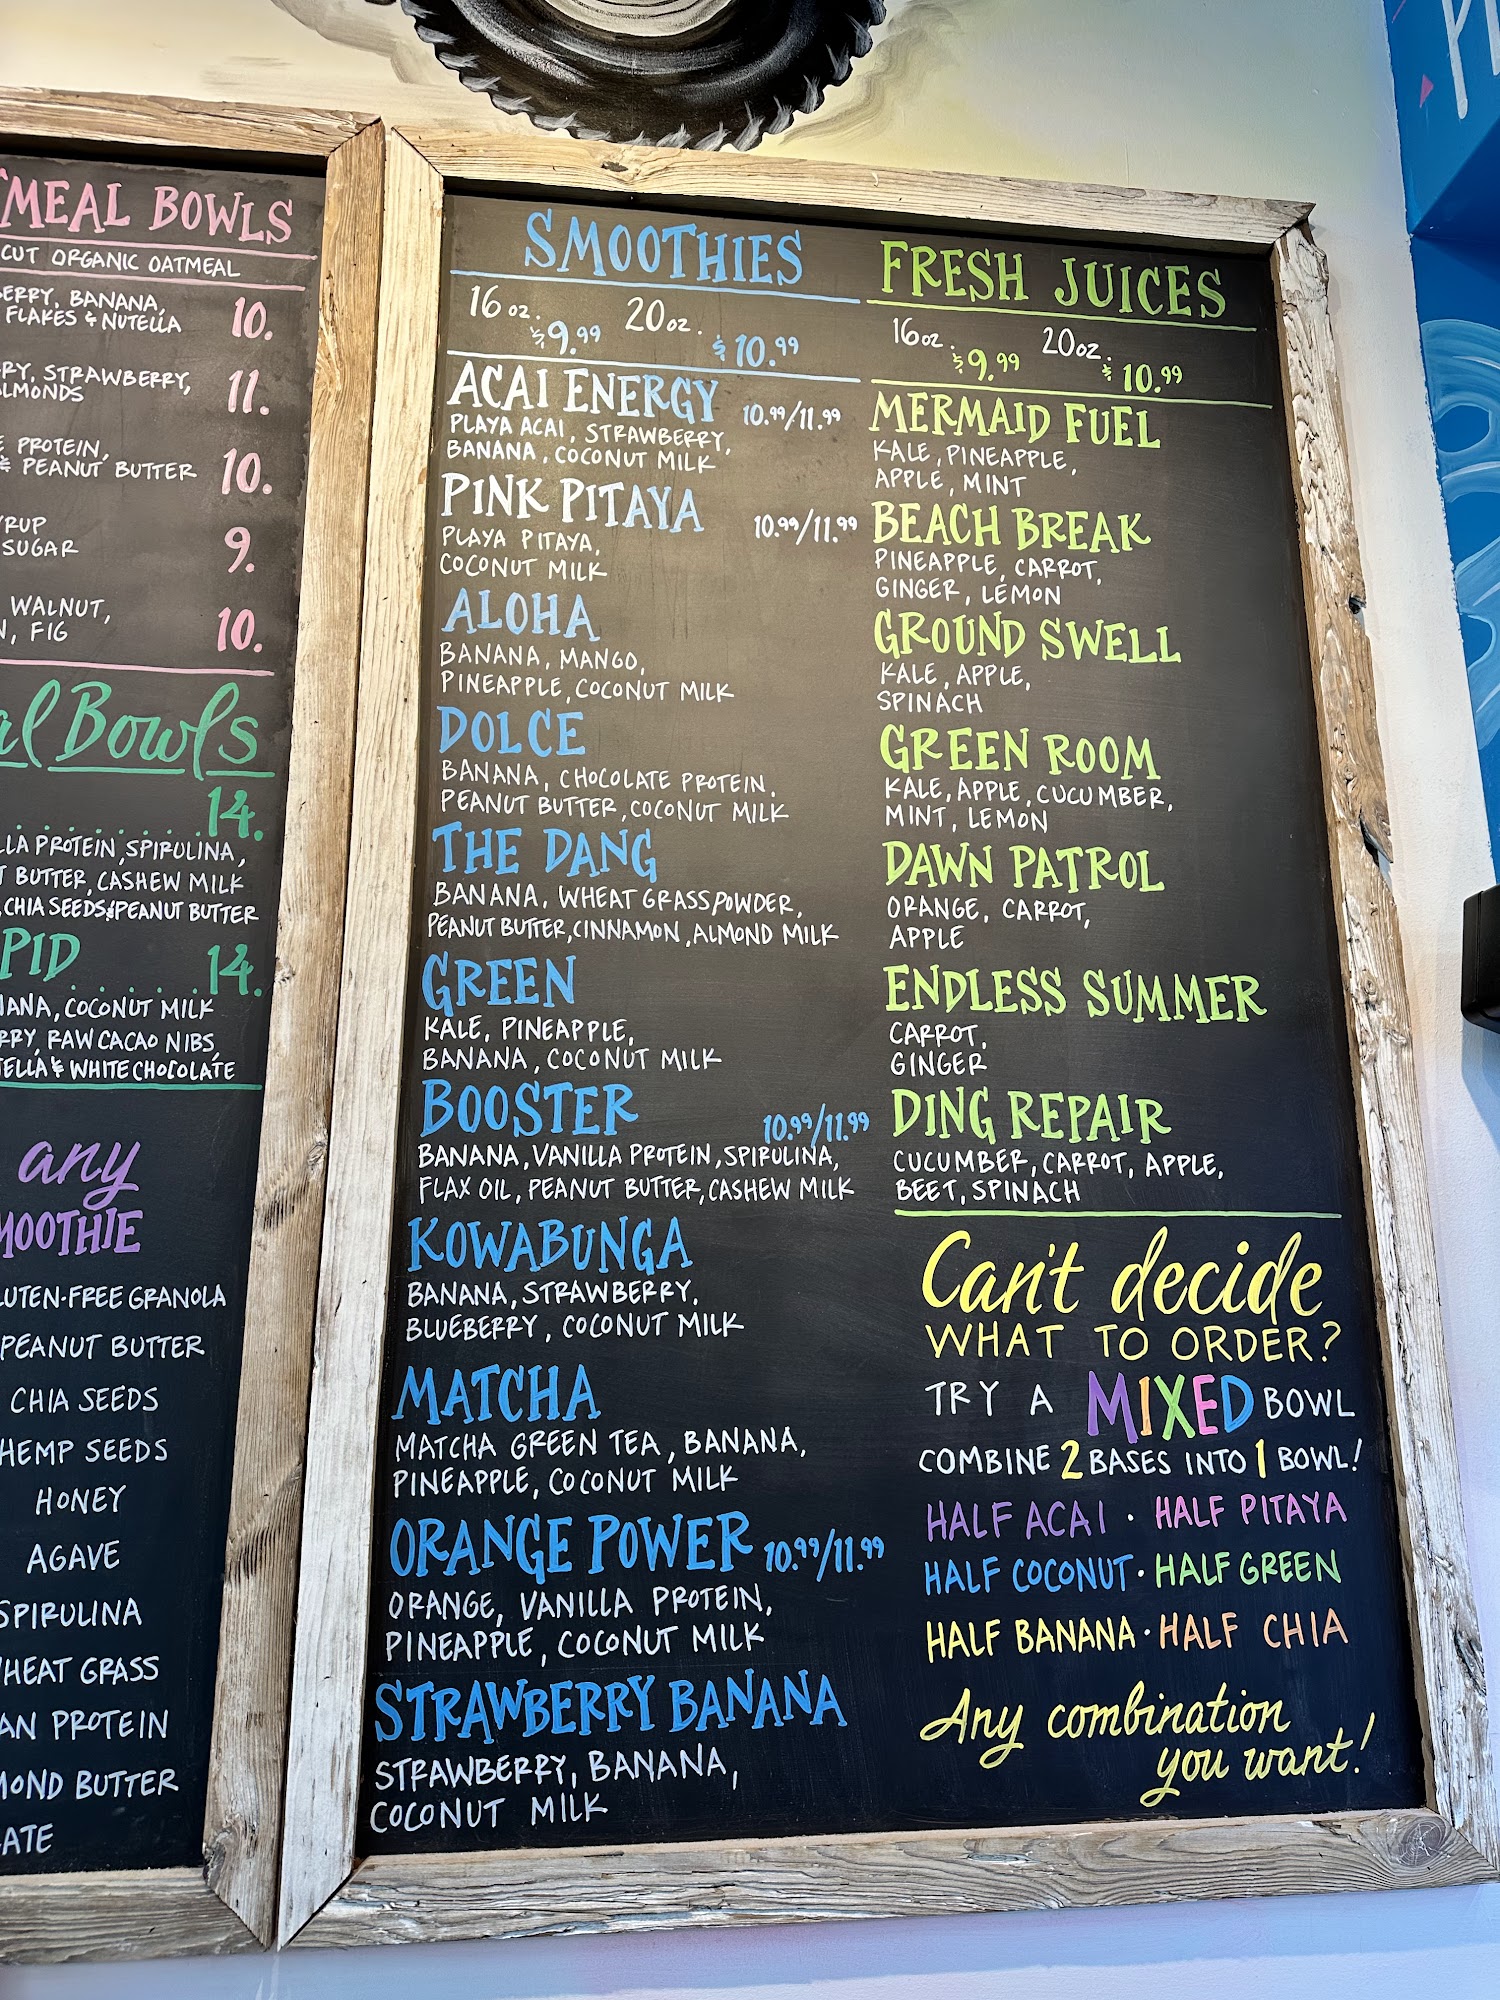 MEAL BOWLS
CUT ORGANIC OATMEAL
BANANA,
FLAKES & NUTELLA 10.
STRAWBERRY,
11.
PROTEIN,
& PEANUT BUTTER 10.
SUGAR 9.
WALNUT,
FIG 10.
Bowls
14.
PROTEIN, SPIRULINA,
BUTTER, CASHEW MILK
CHIA SEEDS & PEANUT BUTTER
14.
COCONUT MILK
RAW CACAO NIBS,
& WHITE CHOCOLATE
any
GRANOLA
PEANUT BUTTER
CHIA SEEDS
HEMP SEEDS
HONEY
AGAVE
SPIRULINA
GRASS
PROTEIN
BUTTER
SMOOTHIES
16 oz. $9.99 20 oz. $10.99
ACAI ENERGY 10.99/11.99
PLAYA ACAI, STRAWBERRY,
BANANA, COCONUT MILK
PINK PITAYA 10.99/11.99
PLAYA PITAYA,
COCONUT MILK
ALOHA
BANANA, MANGO,
PINEAPPLE, COCONUT MILK
DOLCE
BANANA, CHOCOLATE PROTEIN,
PEANUT BUTTER, COCONUT MILK
THE DANG
BANANA, WHEAT GRASS POWDER,
PEANUT BUTTER, CINNAMON, ALMOND MILK
GREEN
KALE, PINEAPPLE,
BANANA, COCONUT MILK
BOOSTER 10.99/11.99
BANANA, VANILLA PROTEIN, SPIRULINA,
FLAX OIL, PEANUT BUTTER, CASHEW MILK
KOWABUNGA
BANANA, STRAWBERRY,
BLUEBERRY, COCONUT MILK
MATCHA
MATCHA GREEN TEA, BANANA,
PINEAPPLE, COCONUT MILK
ORANGE POWER 10.99/11.99
ORANGE, VANILLA PROTEIN,
PINEAPPLE, COCONUT MILK
STRAWBERRY BANANA
STRAWBERRY, BANANA,
COCONUT MILK
FRESH JUICES
16 oz. $9.99 20 oz. $10.99
MERMAID FUEL
KALE, PINEAPPLE,
APPLE, MINT
BEACH BREAK
PINEAPPLE, CARROT,
GINGER, LEMON
GROUND SWELL
KALE, APPLE,
SPINACH
GREEN ROOM
KALE, APPLE, CUCUMBER,
MINT, LEMON
DAWN PATROL
ORANGE, CARROT,
APPLE
ENDLESS SUMMER
CARROT,
GINGER
DING REPAIR
CUCUMBER, CARROT, APPLE,
BEET, SPINACH
Can't decide
WHAT TO ORDER?
TRY A MIXED BOWL
COMBINE 2 BASES INTO 1 BOWL!
HALF ACAI · HALF PITAYA
HALF COCONUT · HALF GREEN
HALF BANANA · HALF CHIA
Any combination
you want!